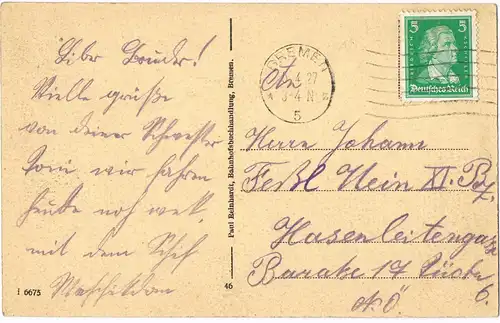 Liber Bruder!
Vielle grüße
von deiner Schwester
wir fahren
heute noch wek
mit dem Schif
I 6673
Paul Reinhardt, Bahnhofsbuchhandlung, Bremen.
46
BREMEN
4.27
3-4 N
5
5 5
Deutsches Reich
An
Herrn Johann
Feßl Wein XI. Bez.
Hasenleitengasse
Barake 17 Türe 6
N.Ö.